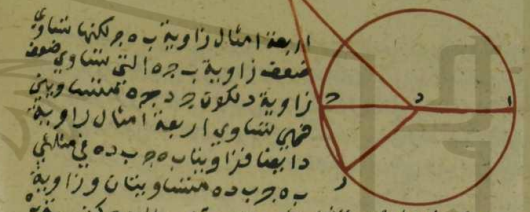 اربعة امثال زاوية ب ه ج لكنها تساوي
ضعف زاوية ب ج ه التي تساوي ضعف
زاوية د لكون ج د ج ه متساويين
فهي تساوي اربعة امثال زاوية
د ا بعنا فزاويتا ب ه ج ب د ه في مثلثي
ب ه ج ب د ه متساويتان وزاوية